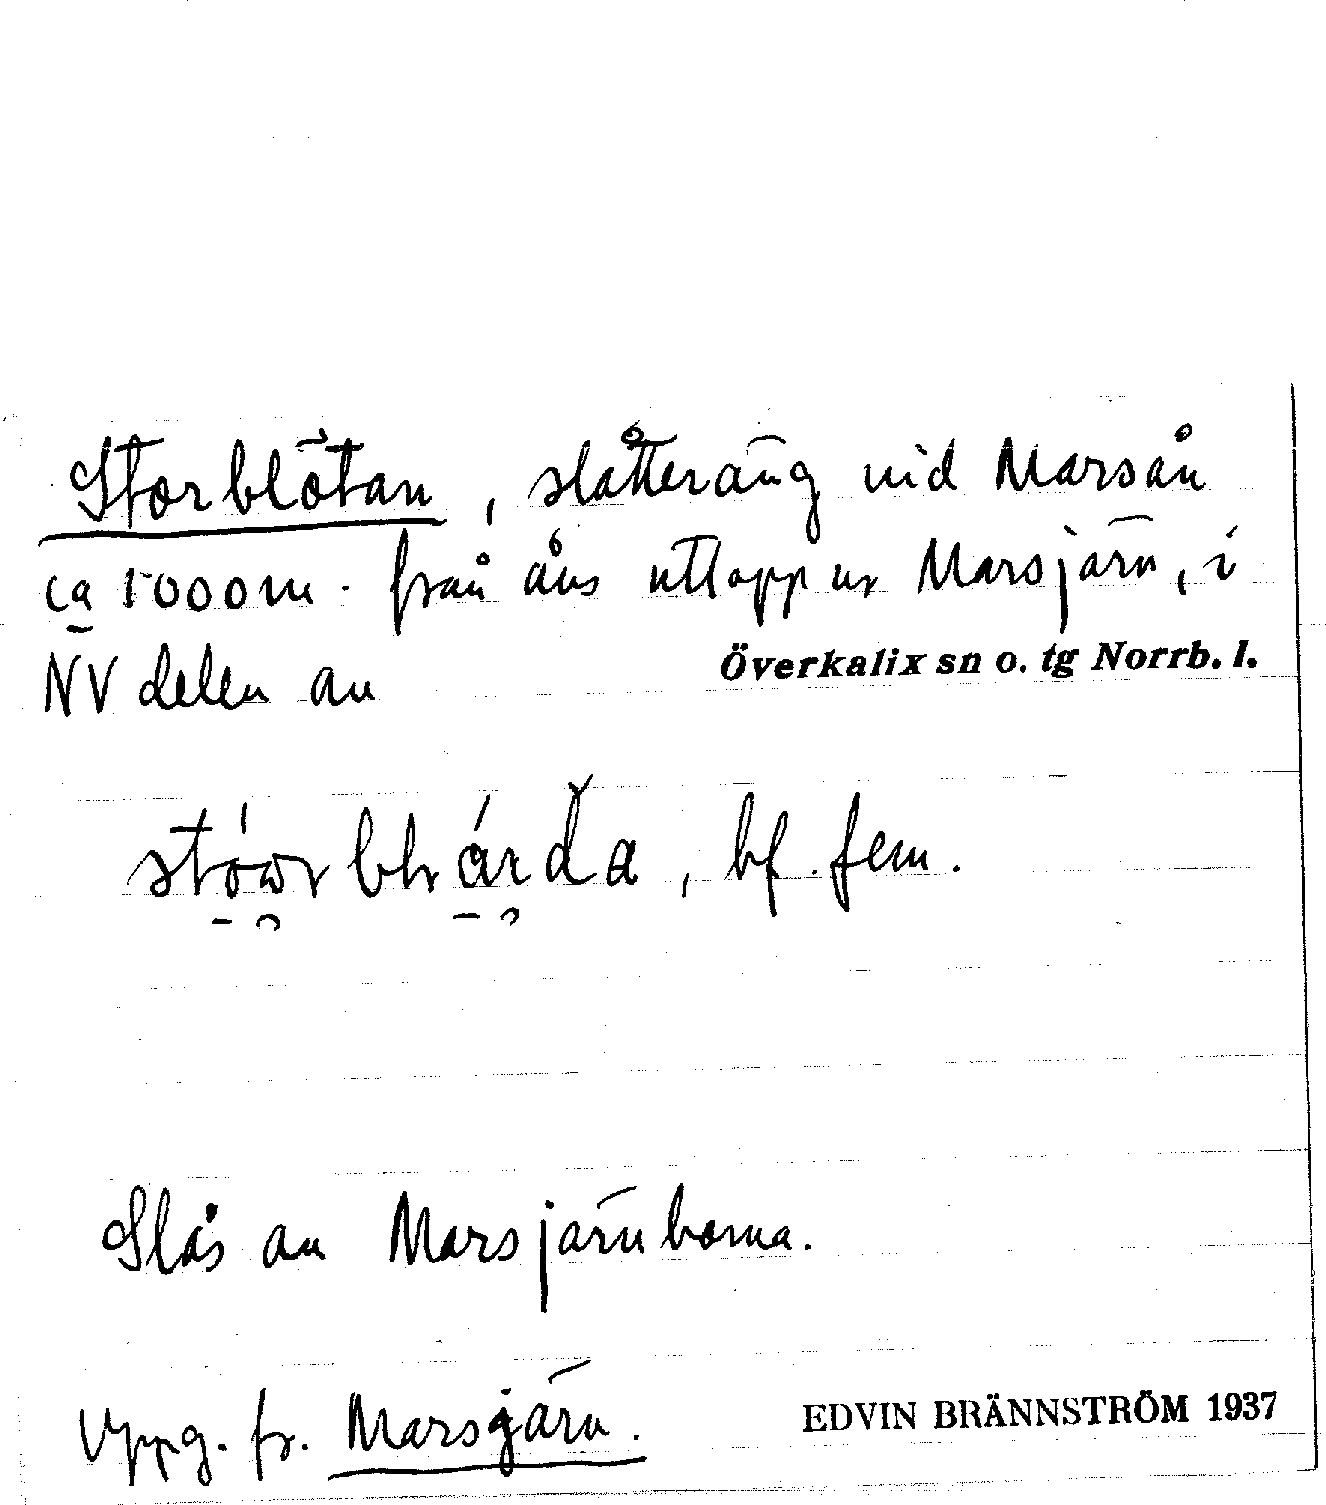 Storblötan, slåtteräng vid Marsån
ca 1000 m. från åns utlopp ur Marsjärv, i
NV delen av Överkalix sn o. tg Norrb. l.
bf. fem.
Slås av Marsjärvborna.
Uppg. fr. Marsjärv.
EDVIN BRÄNNSTRÖM 1937